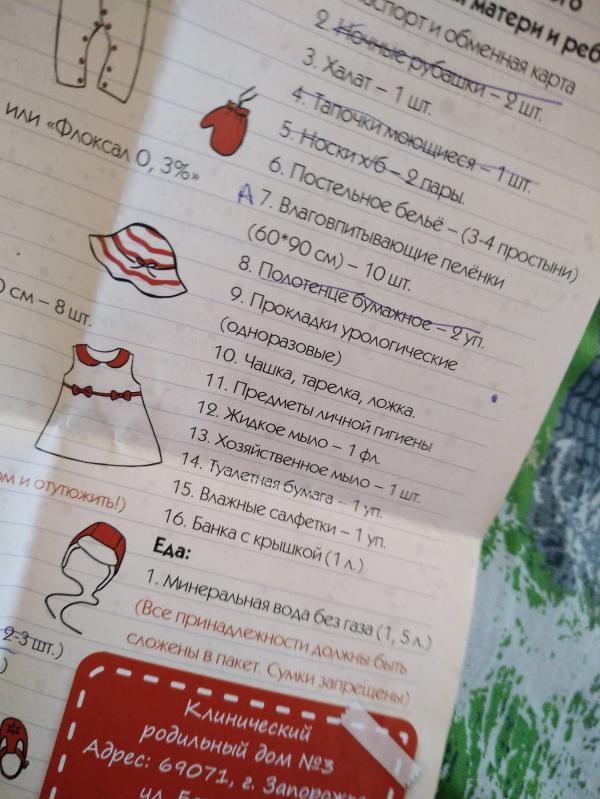 матери и реб
2. Ночные рубашки – 2 шт.
паспорт и обменная карта
3. Халат – 1 шт.
4. Тапочки моющиеся – 1 шт.
5. Носки х/б – 2 пары.
6. Постельное бельё – (3-4 простыни)
А 7. Влаговпитывающие пелёнки
(60*90 см) – 10 шт.
8. Полотенце бумажное – 2 уп.
9. Прокладки урологические
(одноразовые)
10. Чашка, тарелка, ложка.
11. Предметы личной гигиены
12. Жидкое мыло – 1 фл.
13. Хозяйственное мыло – 1 шт.
14. Туалетная бумага – 1 уп.
15. Влажные салфетки – 1 уп.
16. Банка с крышкой (1 л.)
Еда:
1. Минеральная вода без газа (1, 5 л.)
(Все принадлежности должны быть
сложены в пакет. Сумки запрещены)
Клинический
родильный дом №3
Адрес: 69071, г. Запорожье
ул.
или «Флоксал 0, 3%»
0 см – 8 шт.
ом и отутюжить!)
2-3 шт.)